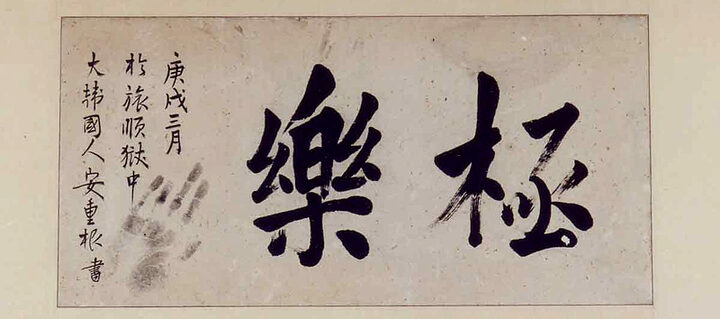 極樂
庚戌三月
於旅順獄中
大韓國人 安重根 書